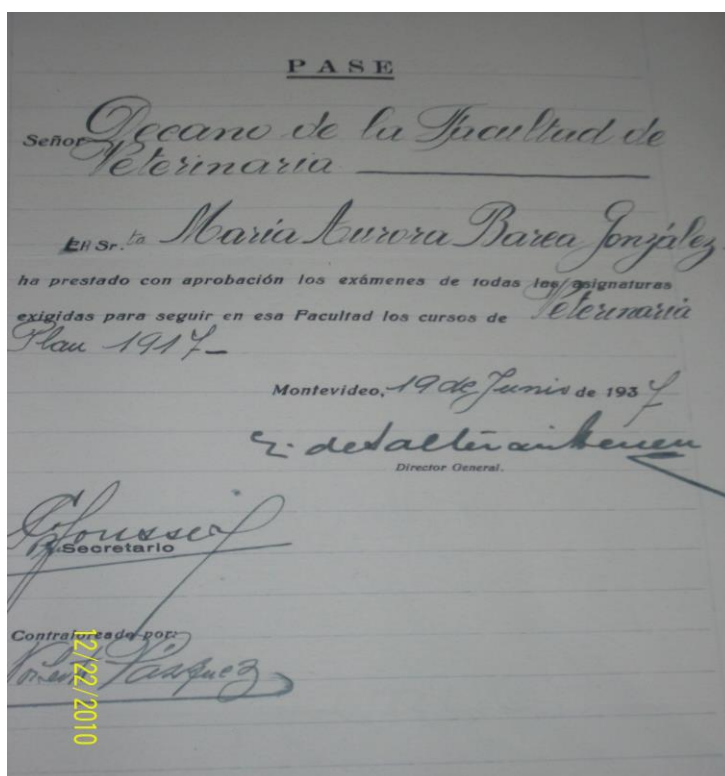 PASE
Señor Decano de la Facultad de
Veterinaria
El Sr.ta María Aurora Barea González
ha prestado con aprobación los exámenes de todas las asignaturas
exigidas para seguir en esa Facultad los cursos de Veterinaria
Plan 1917-
Montevideo, 19 de Junio de 1937
Director General.
Secretario
Contraloreado por:
Vázquez
12/22/2010